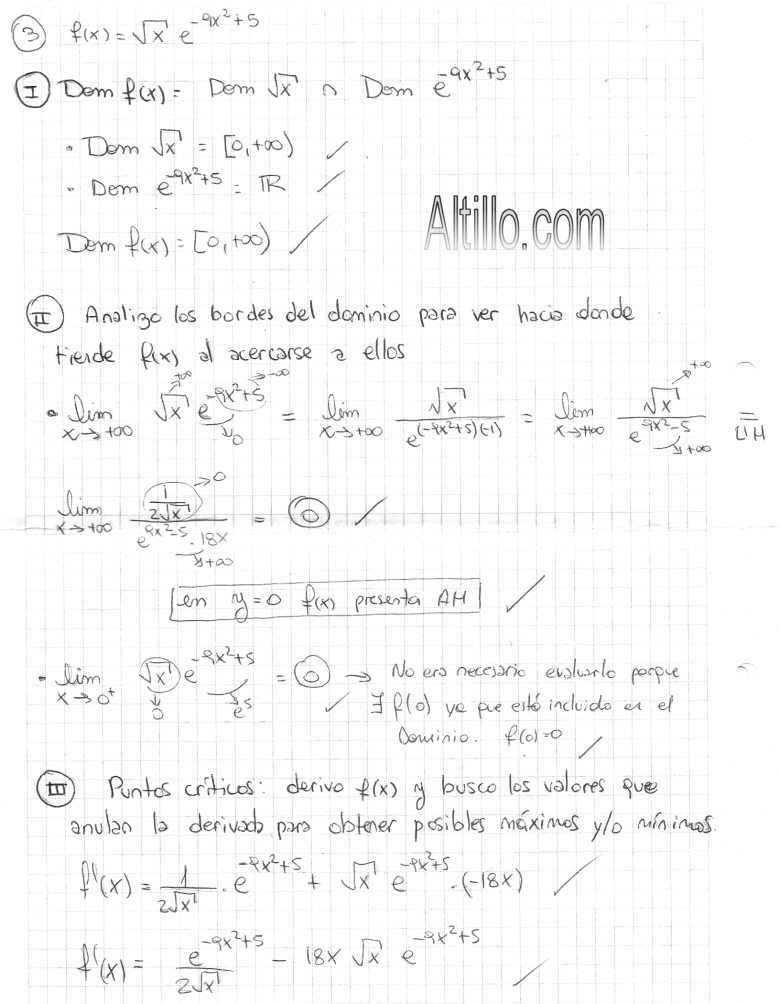 ③ f(x) = √x e^(-9x²+5)
Ⓘ Dom f(x) = Dom √x ∩ Dom e^(-9x²+5)
• Dom √x = [0,+∞) ✓
• Dom e^(-9x²+5) = ℝ ✓
Altillo.com
Dom f(x) = [0,+∞) ✓
Ⓘ Ⓘ Analizo los bordes del dominio para ver hacia donde
tiende f(x) al acercarse a ellos
• lim x→+∞ √x (→+∞) e^(-9x²+5) (→-∞) (→0) = lim x→+∞ √x / e^((-9x²+5)(-1)) = lim x→+∞ √x (→+∞) / e^(9x²-5) (→+∞) = L'H
lim x→+∞ (1/(2√x)) (→0) / (e^(9x²-5) . 18x) (→+∞) = 0 ✓
en y=0 f(x) presenta AH ✓
• lim x→0⁺ √x (→0) e^(-9x²+5) (→e⁵) = 0 → No era necesario evaluarlo porque
✓ ∃ f(0) ya que está incluido en el
Dominio. f(0)=0 ✓
III Puntos críticos: derivo f(x) y busco los valores que
anulan la derivada para obtener posibles máximos y/o mínimos.
f'(x) = 1/(2√x) . e^(-9x²+5) + √x e^(-9x²+5) . (-18x) ✓
f'(x) = e^(-9x²+5)/(2√x) - 18x √x e^(-9x²+5) ✓